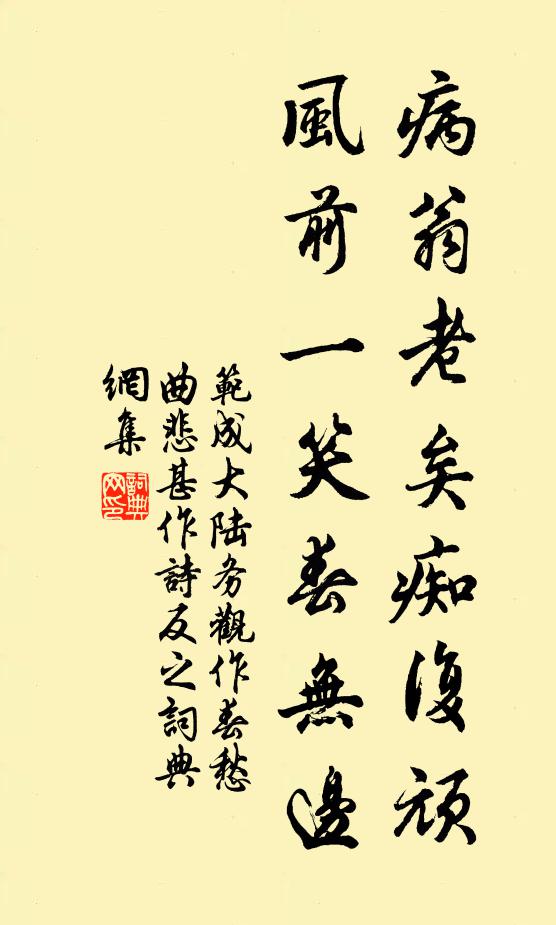 病翁老矣痴復頑
風前一笑春無邊
範成大陸务觀作春愁
曲悲甚作詩反之詞典
網集
詞典
网印